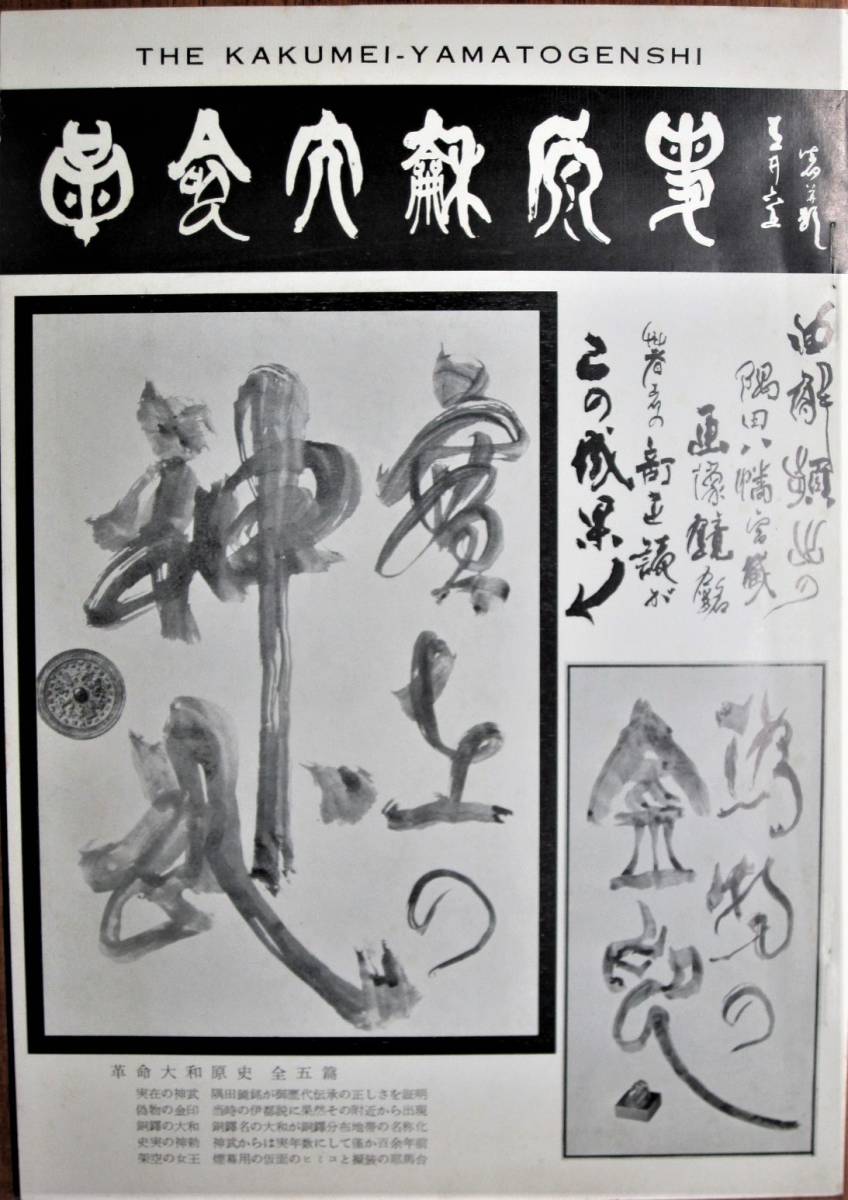 THE KAKUMEI-YAMATOGENSHI
革命大和原史
隅田八幡宮蔵
画像鏡
この成果
實在の
神武
僞物の
金印
革命大和原史 全五篇
実在の神武 隅田鏡銘が御歴代伝承の正しさを証明
偽物の金印 当時の伊都説に果然その附近から出現
銅鐸の大和 銅鐸名の大和が銅鐸分布地帯の名称化
史実の神勅 神武からは実年数にして僅か百余年前
架空の女王 煙幕用の仮面のヒミコと擬装の耶馬台